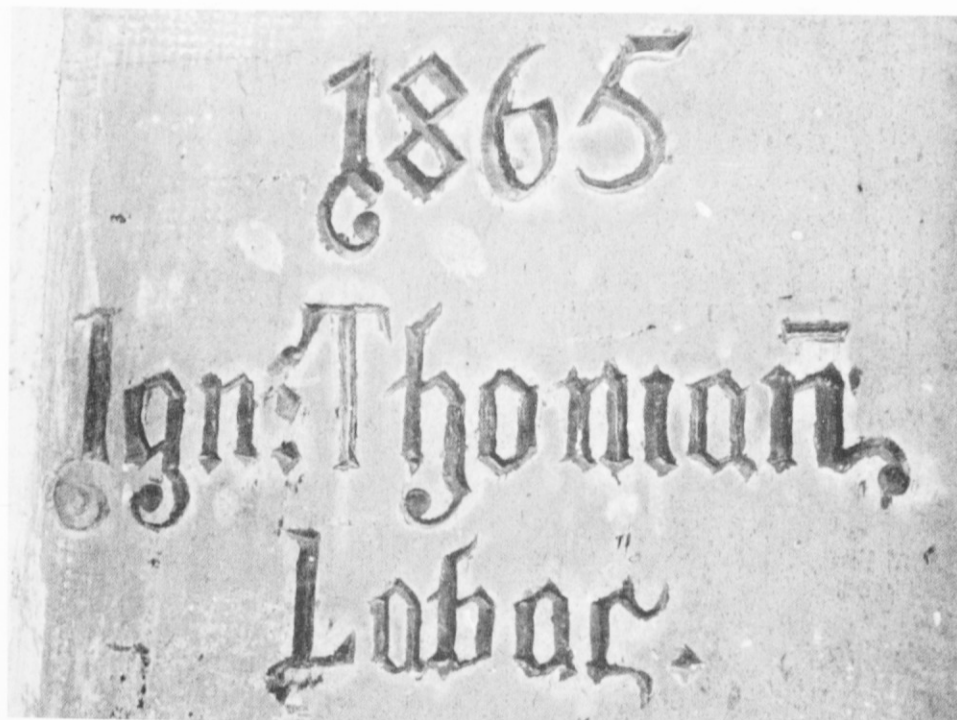 1865
Ign: Thoman̄
Labac.